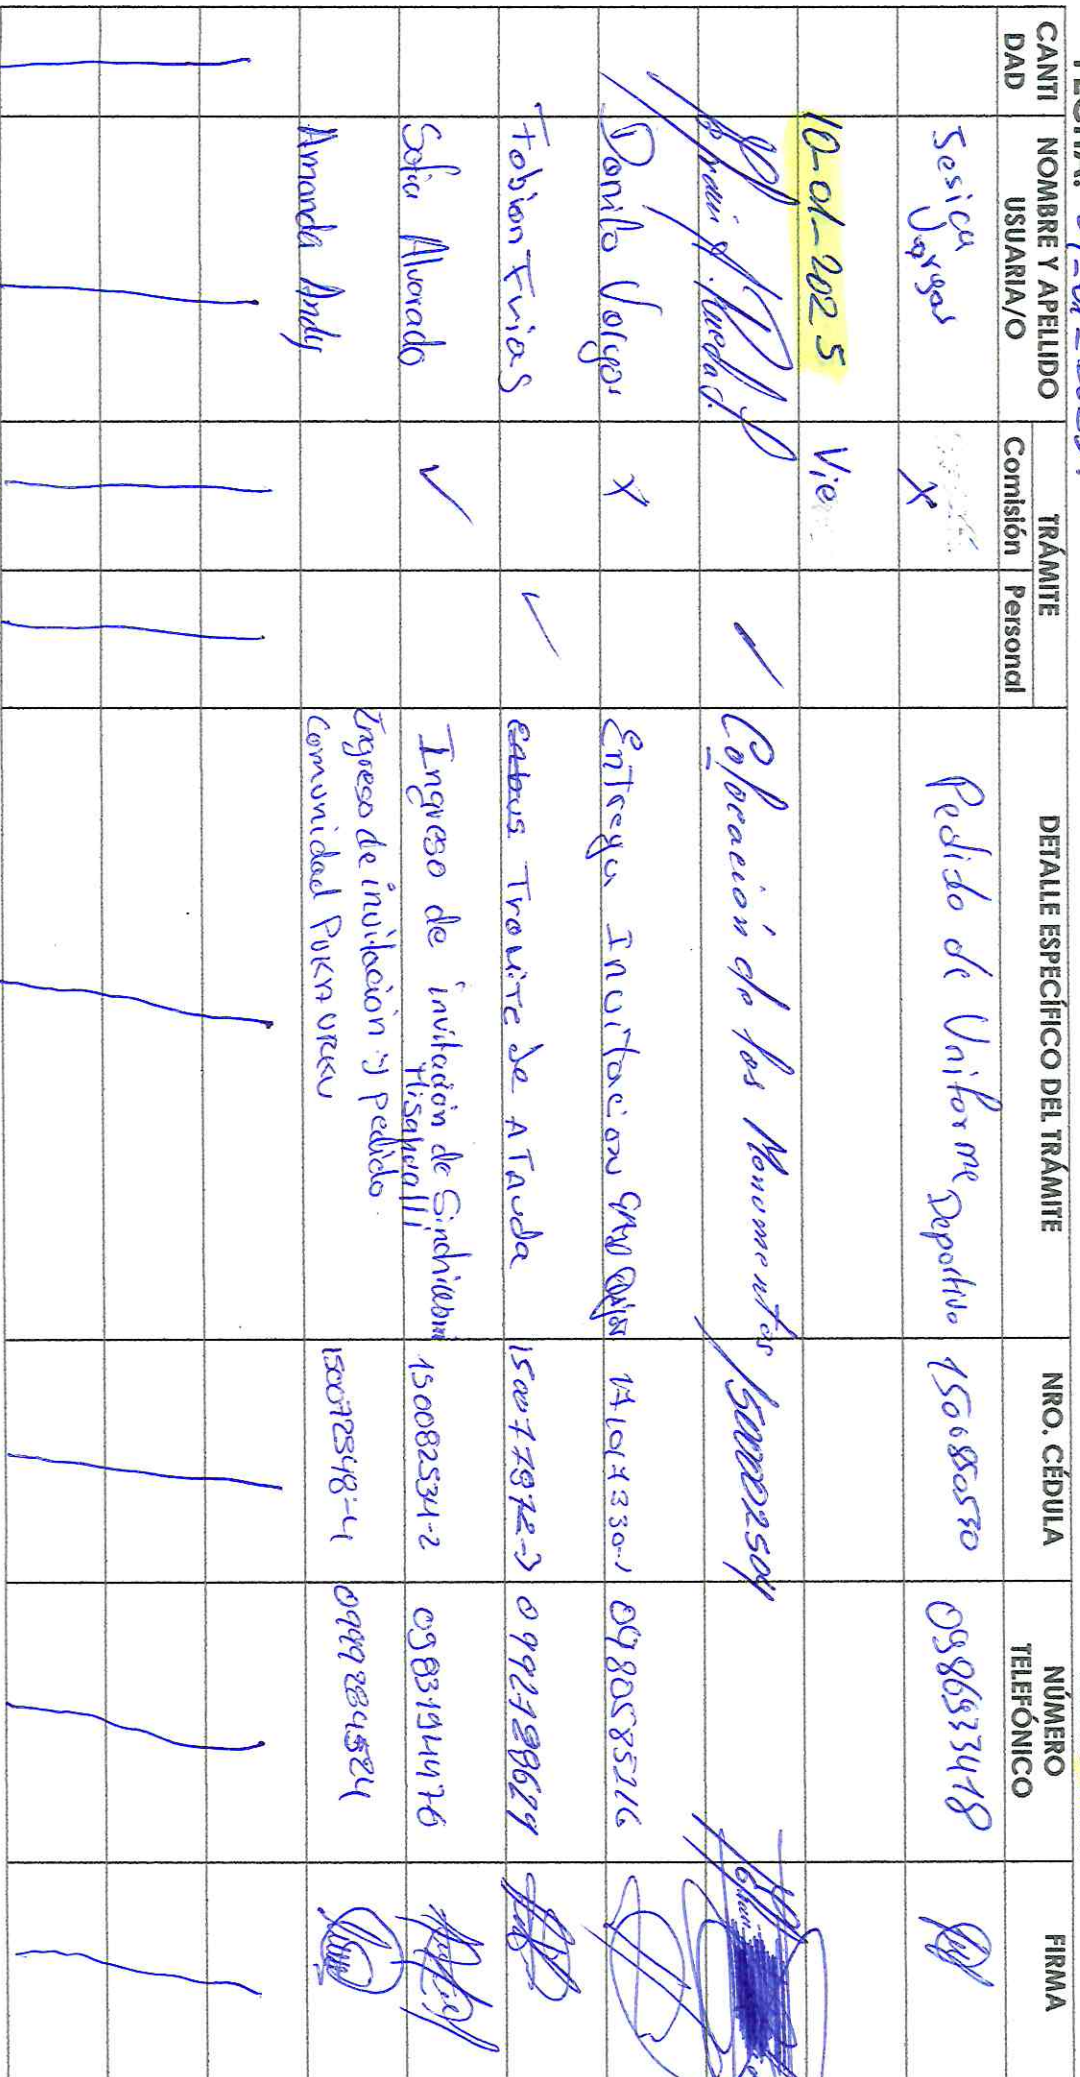 FECHA:
CANTI DAD NOMBRE Y APELLIDO USUARIA/O TRÁMITE Comisión Personal DETALLE ESPECÍFICO DEL TRÁMITE NRO. CÉDULA NÚMERO TELEFÓNICO FIRMA
Jesica Vargas X Pedido de Uniforme Deportivo 1500850530 0986933418
10-01-2025 Vie
✓ Colocación de los Monumentos 150002504
Danilo Vargas X Entrega Invitacion GAD 0980585216
Fabian Frias ✓ Tramite de ATauda 0992798629
Sofia Alvarado ✓ Ingreso de invitación de Misahualli 150082534-2 0983194476
Amanda Andy Ingreso de invitación y pedido Comunidad 150072548-4 0999284524